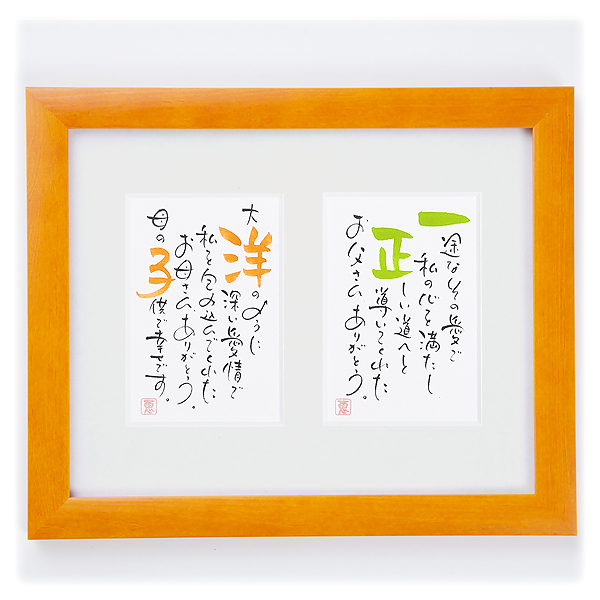 一途なその愛で
私の心を満たし
正しい道へと
導いてくれた
お父さん、ありがとう。
大洋のように
深い愛情で
私を包み込んでくれた
お母さん、ありがとう。
母の子供で幸せです。